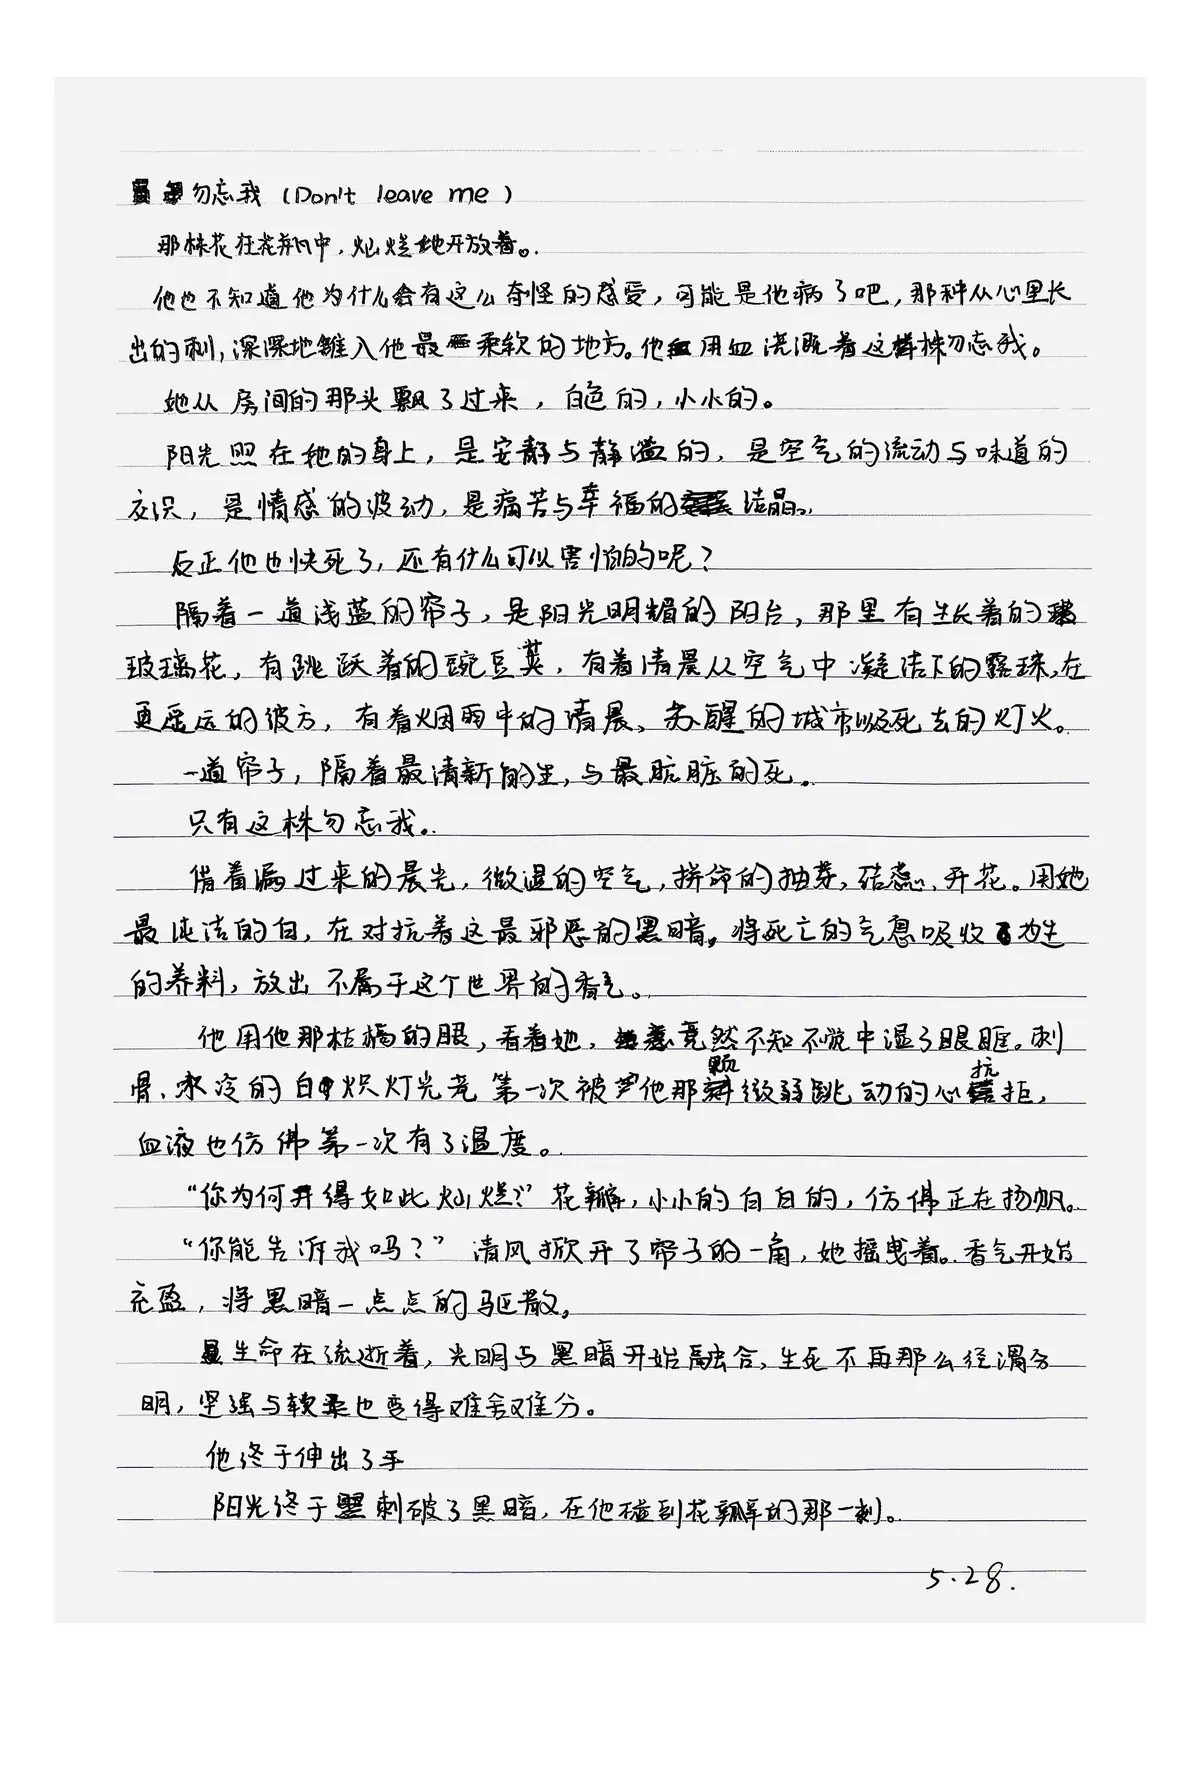 勿忘我 (Don't leave me)
那株花在花瓶中，灿烂地开放着。
他也不知道他为什么会有这么奇怪的感受，可能是他病了吧，那种从心里长
出的刺，深深地锥入他最柔软的地方。他用血浇溉着这株勿忘我。
她从房间的那头飘了过来，白色的，小小的。
阳光照在她的身上，是安静与静谧的，是空气的流动与味道的
交织，是情感的波动，是痛苦与幸福的结晶。
反正他也快死了，还有什么可以害怕的呢？
隔着一道浅蓝的帘子，是阳光明媚的阳台，那里有生长着的
玻璃花，有跳跃着的豌豆荚，有着清晨从空气中凝结下的露珠，在
更遥远的彼方，有着烟雨中的清晨、苏醒的城市以及死去的灯火。
一道帘子，隔着最清新的生，与最肮脏的死。
只有这株勿忘我。
借着漏过来的晨光，微湿的空气，拼命的抽芽，结蕊、开花。用她
最纯洁的白，在对抗着这最邪恶的黑暗。将死亡的气息吸收为生
的养料，放出不属于这个世界的香气。
他用他那枯槁的眼，看着她，竟然不知不觉中湿了眼眶。刺
骨、冰冷的白炽灯光竟第一次被他那颗微弱跳动的心抗拒，
血液也仿佛第一次有了温度。
“你为何开得如此灿烂？”花瓣，小小的白白的，仿佛正在扬帆。
“你能告诉我吗？”清风掀开了帘子的一角，她摇曳着。香气开始
充盈，将黑暗一点点的驱散。
生命在流逝着，光明与黑暗开始融合，生死不再那么径渭分
明，坚强与软柔也变得难舍难分。
他终于伸出了手
阳光终于刺破了黑暗，在他碰到花瓣的那一刹。
5.28.